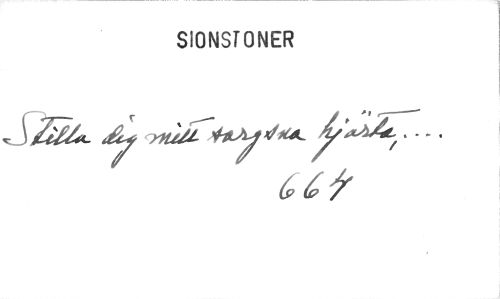 SIONSTONER
Stilla dig mitt sargsna hjärta,....
664